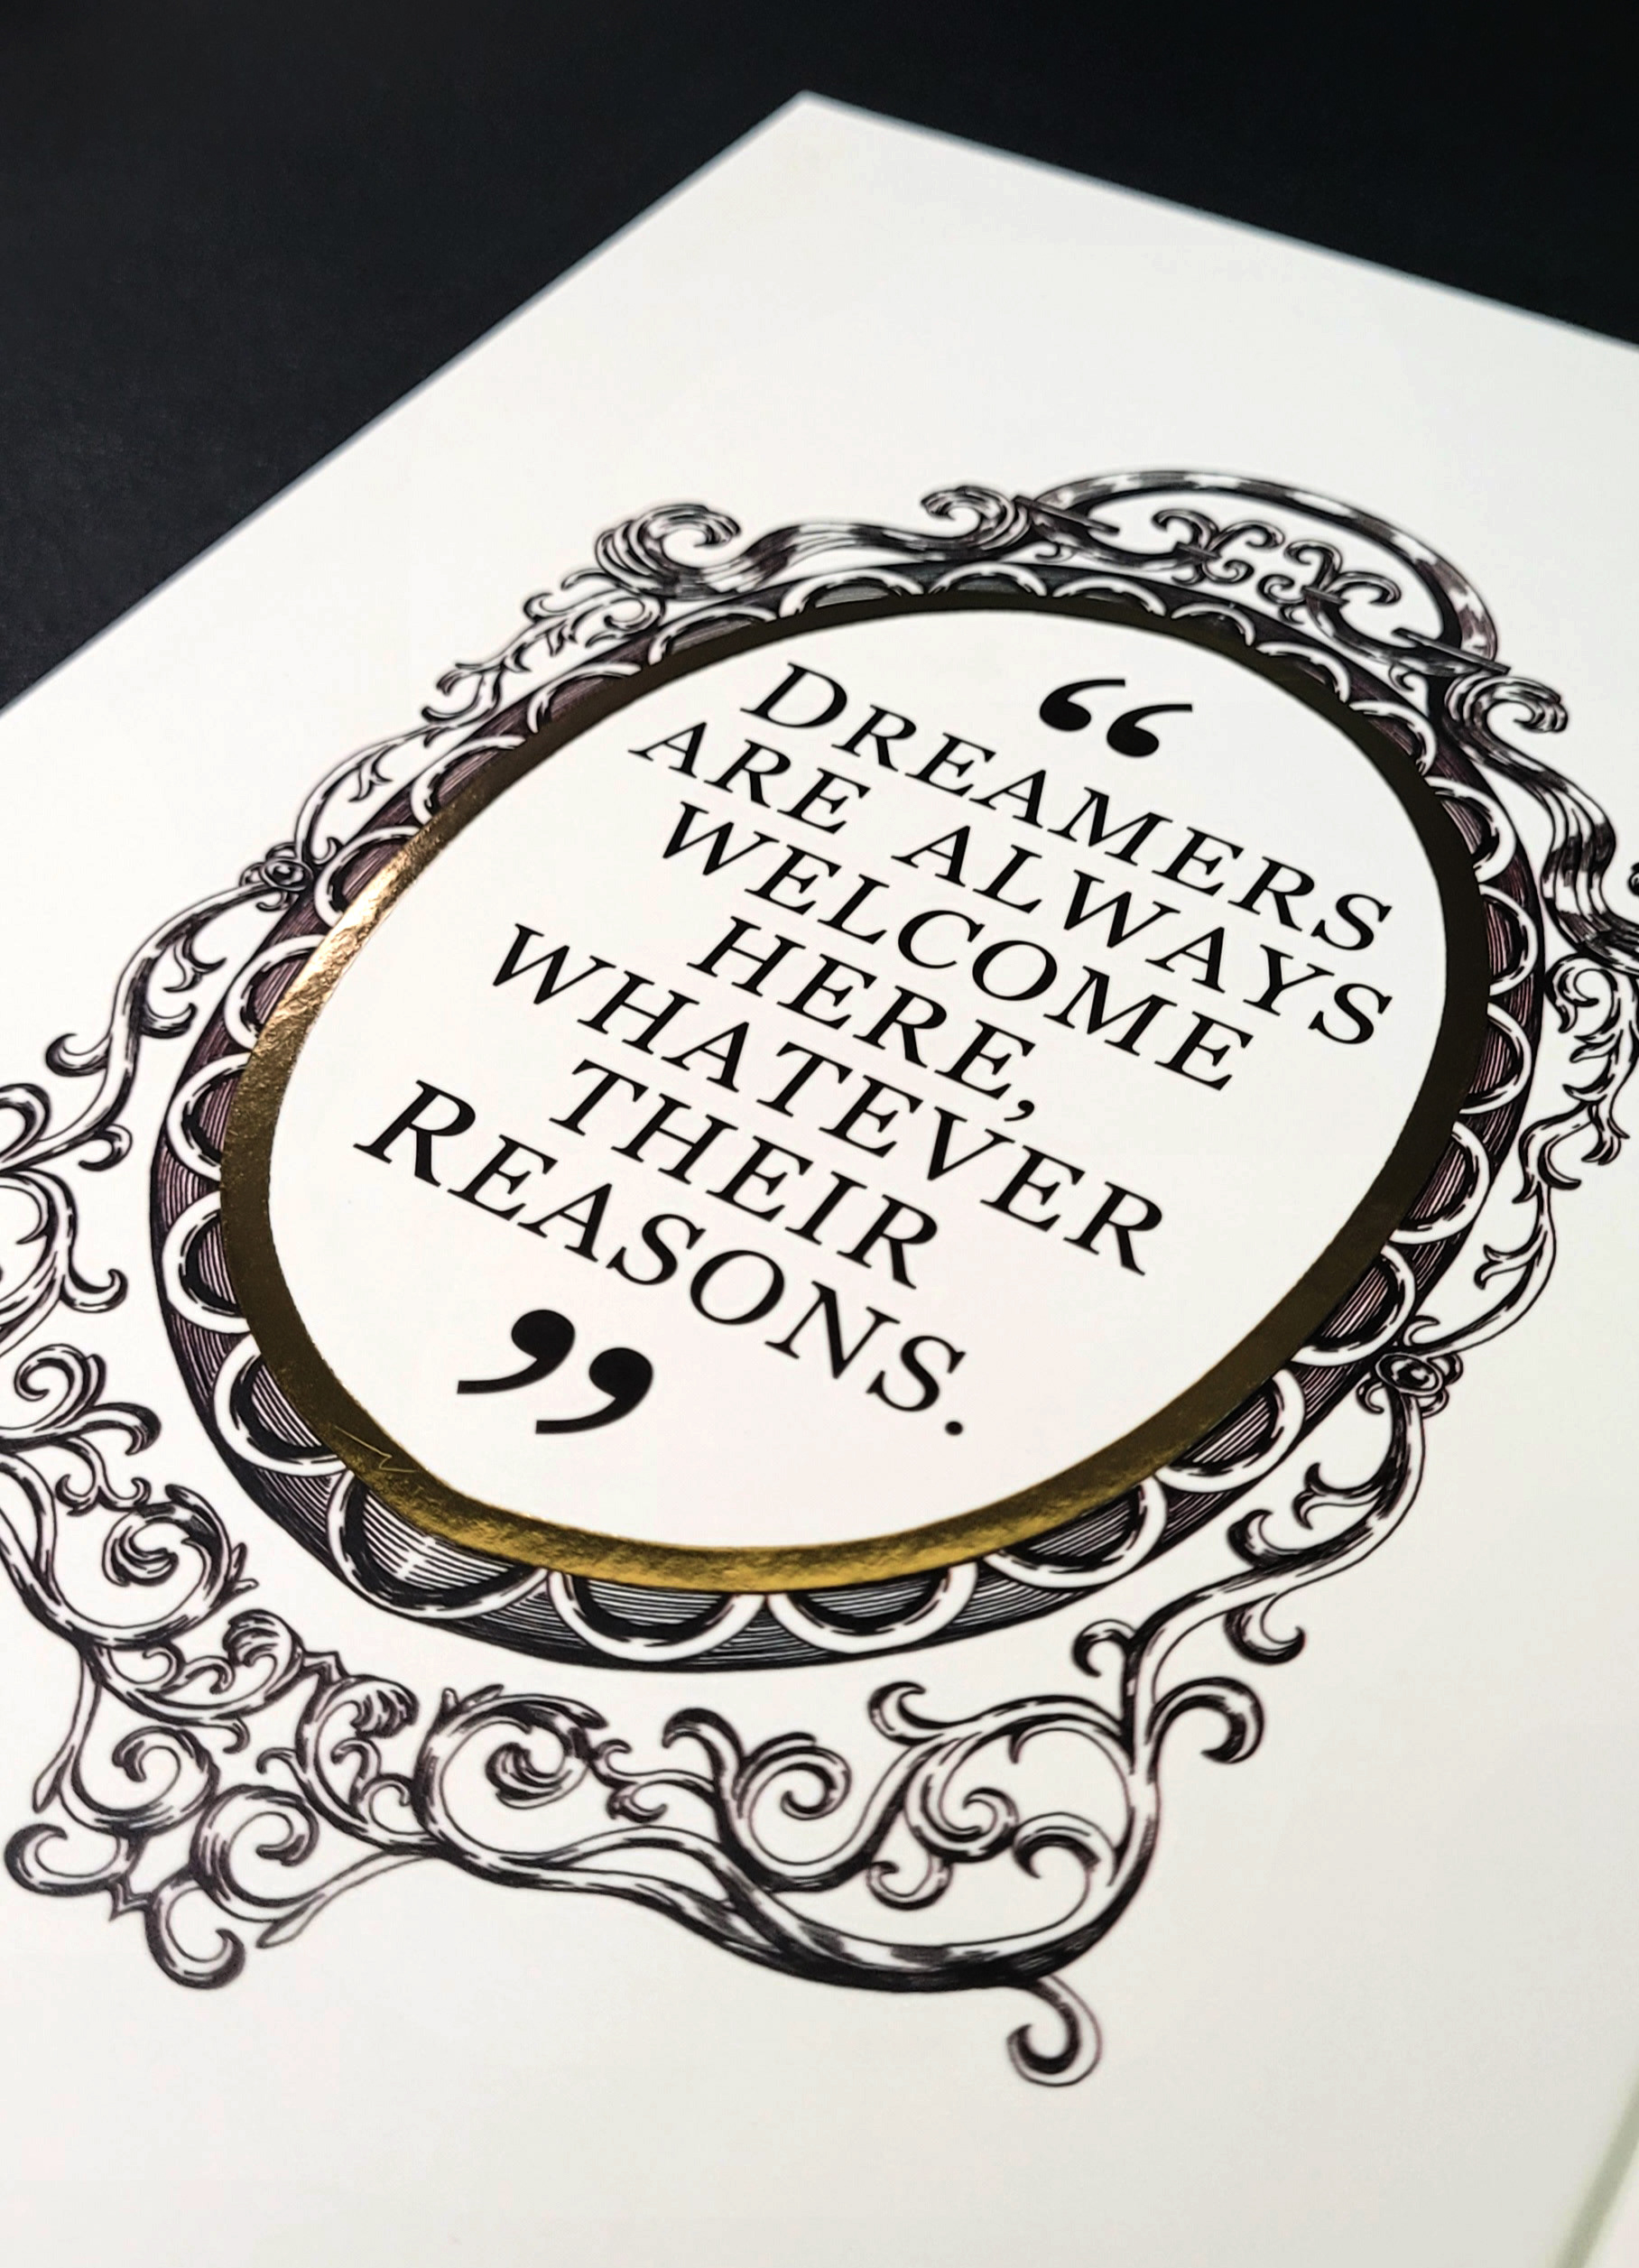 “
DREAMERS
ARE ALWAYS
WELCOME
HERE,
WHATEVER
THEIR
REASONS.
”